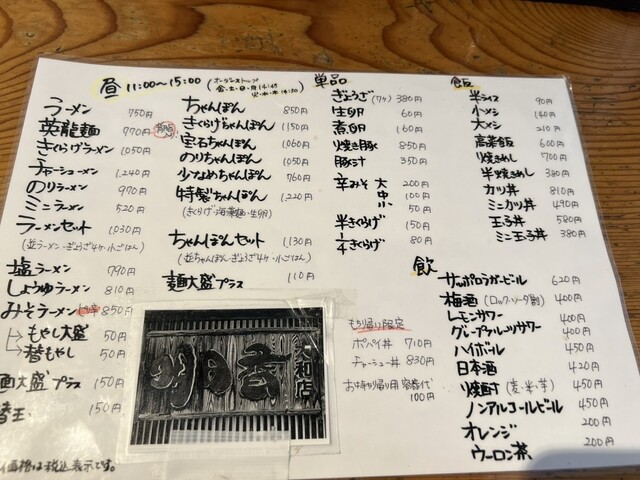 昼 11:00〜15:00 (オーダーストップ
ラーメン 750円
英龍麺 770円
きくらげラーメン 1050円
チャーシューメン 1,240円
のりラーメン 970円
ミニラーメン 520円
ラーメンセット 1030円
(並ラーメン・ぎょうざ4ケ・小ごはん)
塩ラーメン 770円
しょうゆラーメン 810円
みそラーメン 850円
もやし大盛 50円
替もやし 50円
大盛プラス 150円
替玉 150円
価格は税込表示です。
ちゃんぽん 850円
きくらげちゃんぽん 1150円
宝石ちゃんぽん 1060円
のりちゃんぽん 1050円
少なめちゃんぽん 760円
特製ちゃんぽん 1,220円
(きくらげ・海藻麺・生卵)
ちゃんぽんセット 1130円
(並ちゃんぽん・ぎょうざ4ケ・小ごはん)
麺大盛プラス 110円
明日香
大和店
単品
ぎょうざ(7ケ) 380円
生卵 60円
煮卵 160円
焼き豚 850円
豚汁 350円
辛みそ 大 200円
中 100円
小 50円
半きくらげ 150円
1/4きくらげ 80円
もち帰り限定
ポパイ丼 710円
チャーシュー丼 830円
お持帰り用 容器代
100円
飯
半ライス 90円
小メシ 140円
大メシ 210円
高菜飯 600円
焼きめし 700円
半焼きめし 380円
カツ丼 810円
ミニカツ丼 490円
玉子丼 580円
ミニ玉子丼 380円
飲
サッポロラガービール 620円
梅酒(ロック・ソーダ割) 400円
レモンサワー 400円
グレープフルーツサワー 400円
ハイボール 450円
日本酒 420円
焼酎(麦・米・芋) 450円
ノンアルコールビール 450円
オレンジ 200円
ウーロン茶 200円